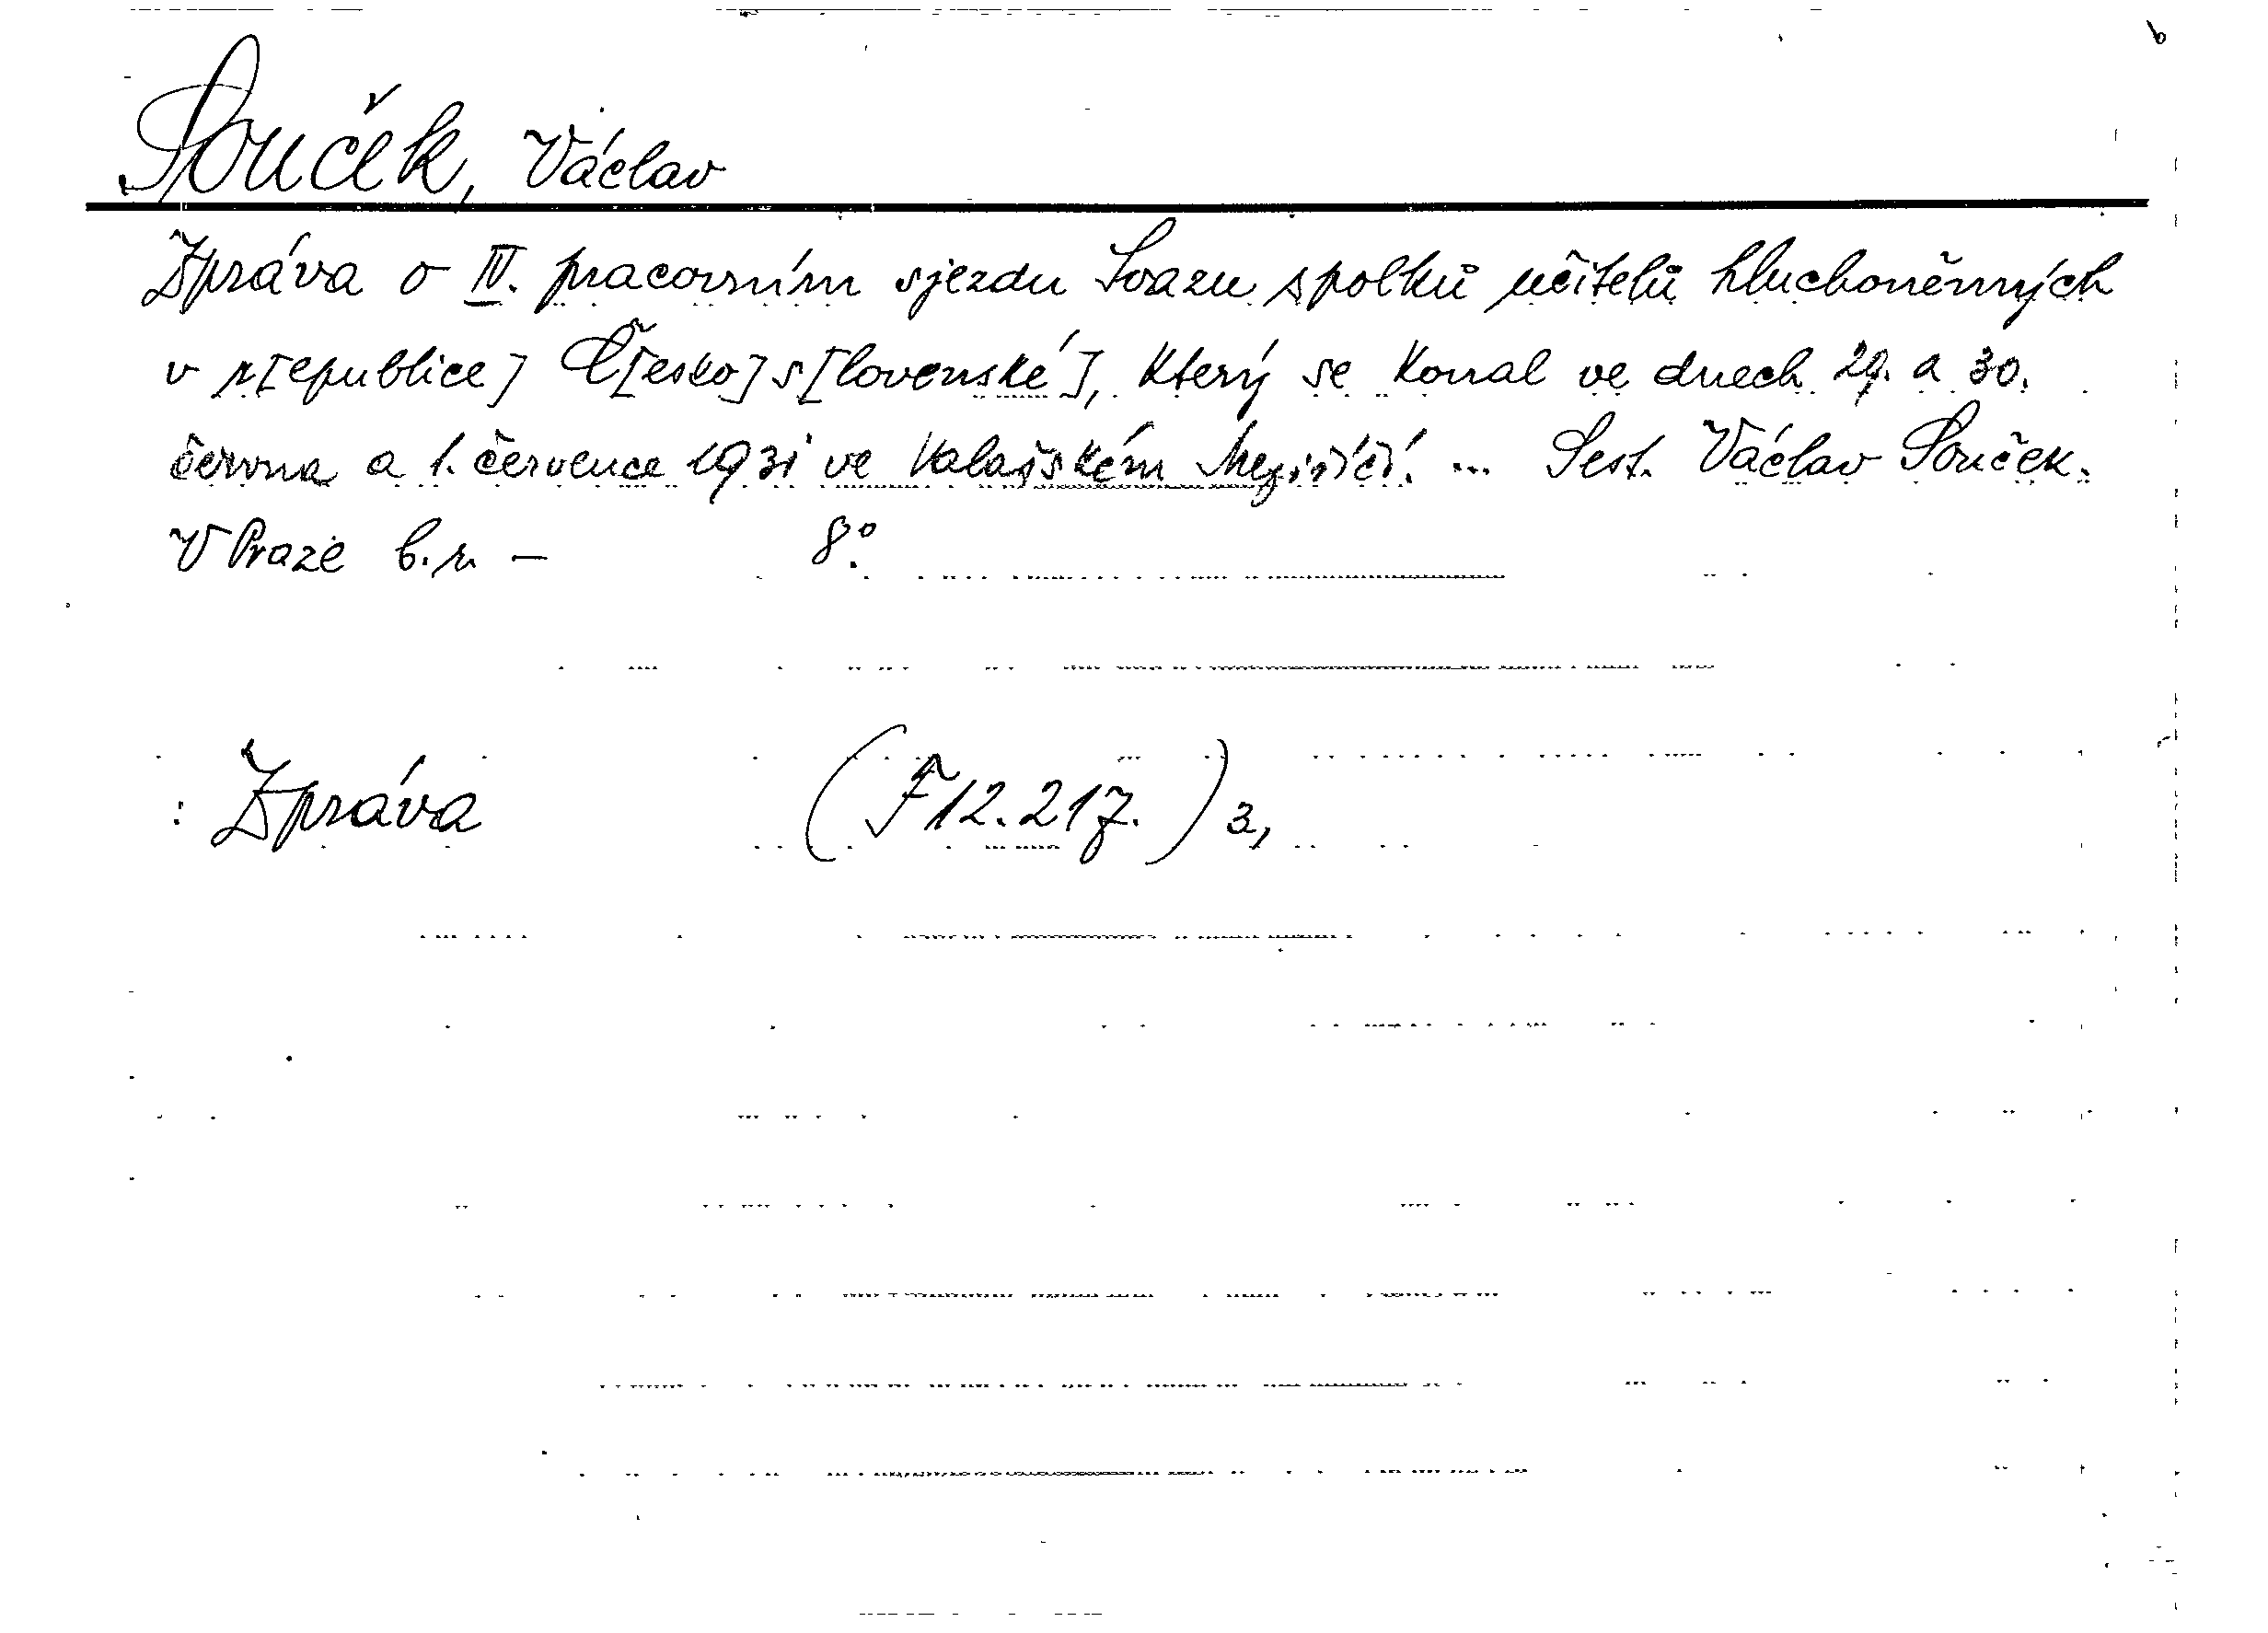 Souček, Václav
Zpráva o IV. pracovním sjezdu Svazu spolků učitelů hluchoněmých
v r[epublice] Č[esko]s[lovenské], který se konal ve dnech 29. a 30.
června a 1. července 1931 ve Valašském Meziříčí. ... Sest. Václav Souček.
V Praze b.r. – 8°.
: Zpráva (F 12.217.) 3,